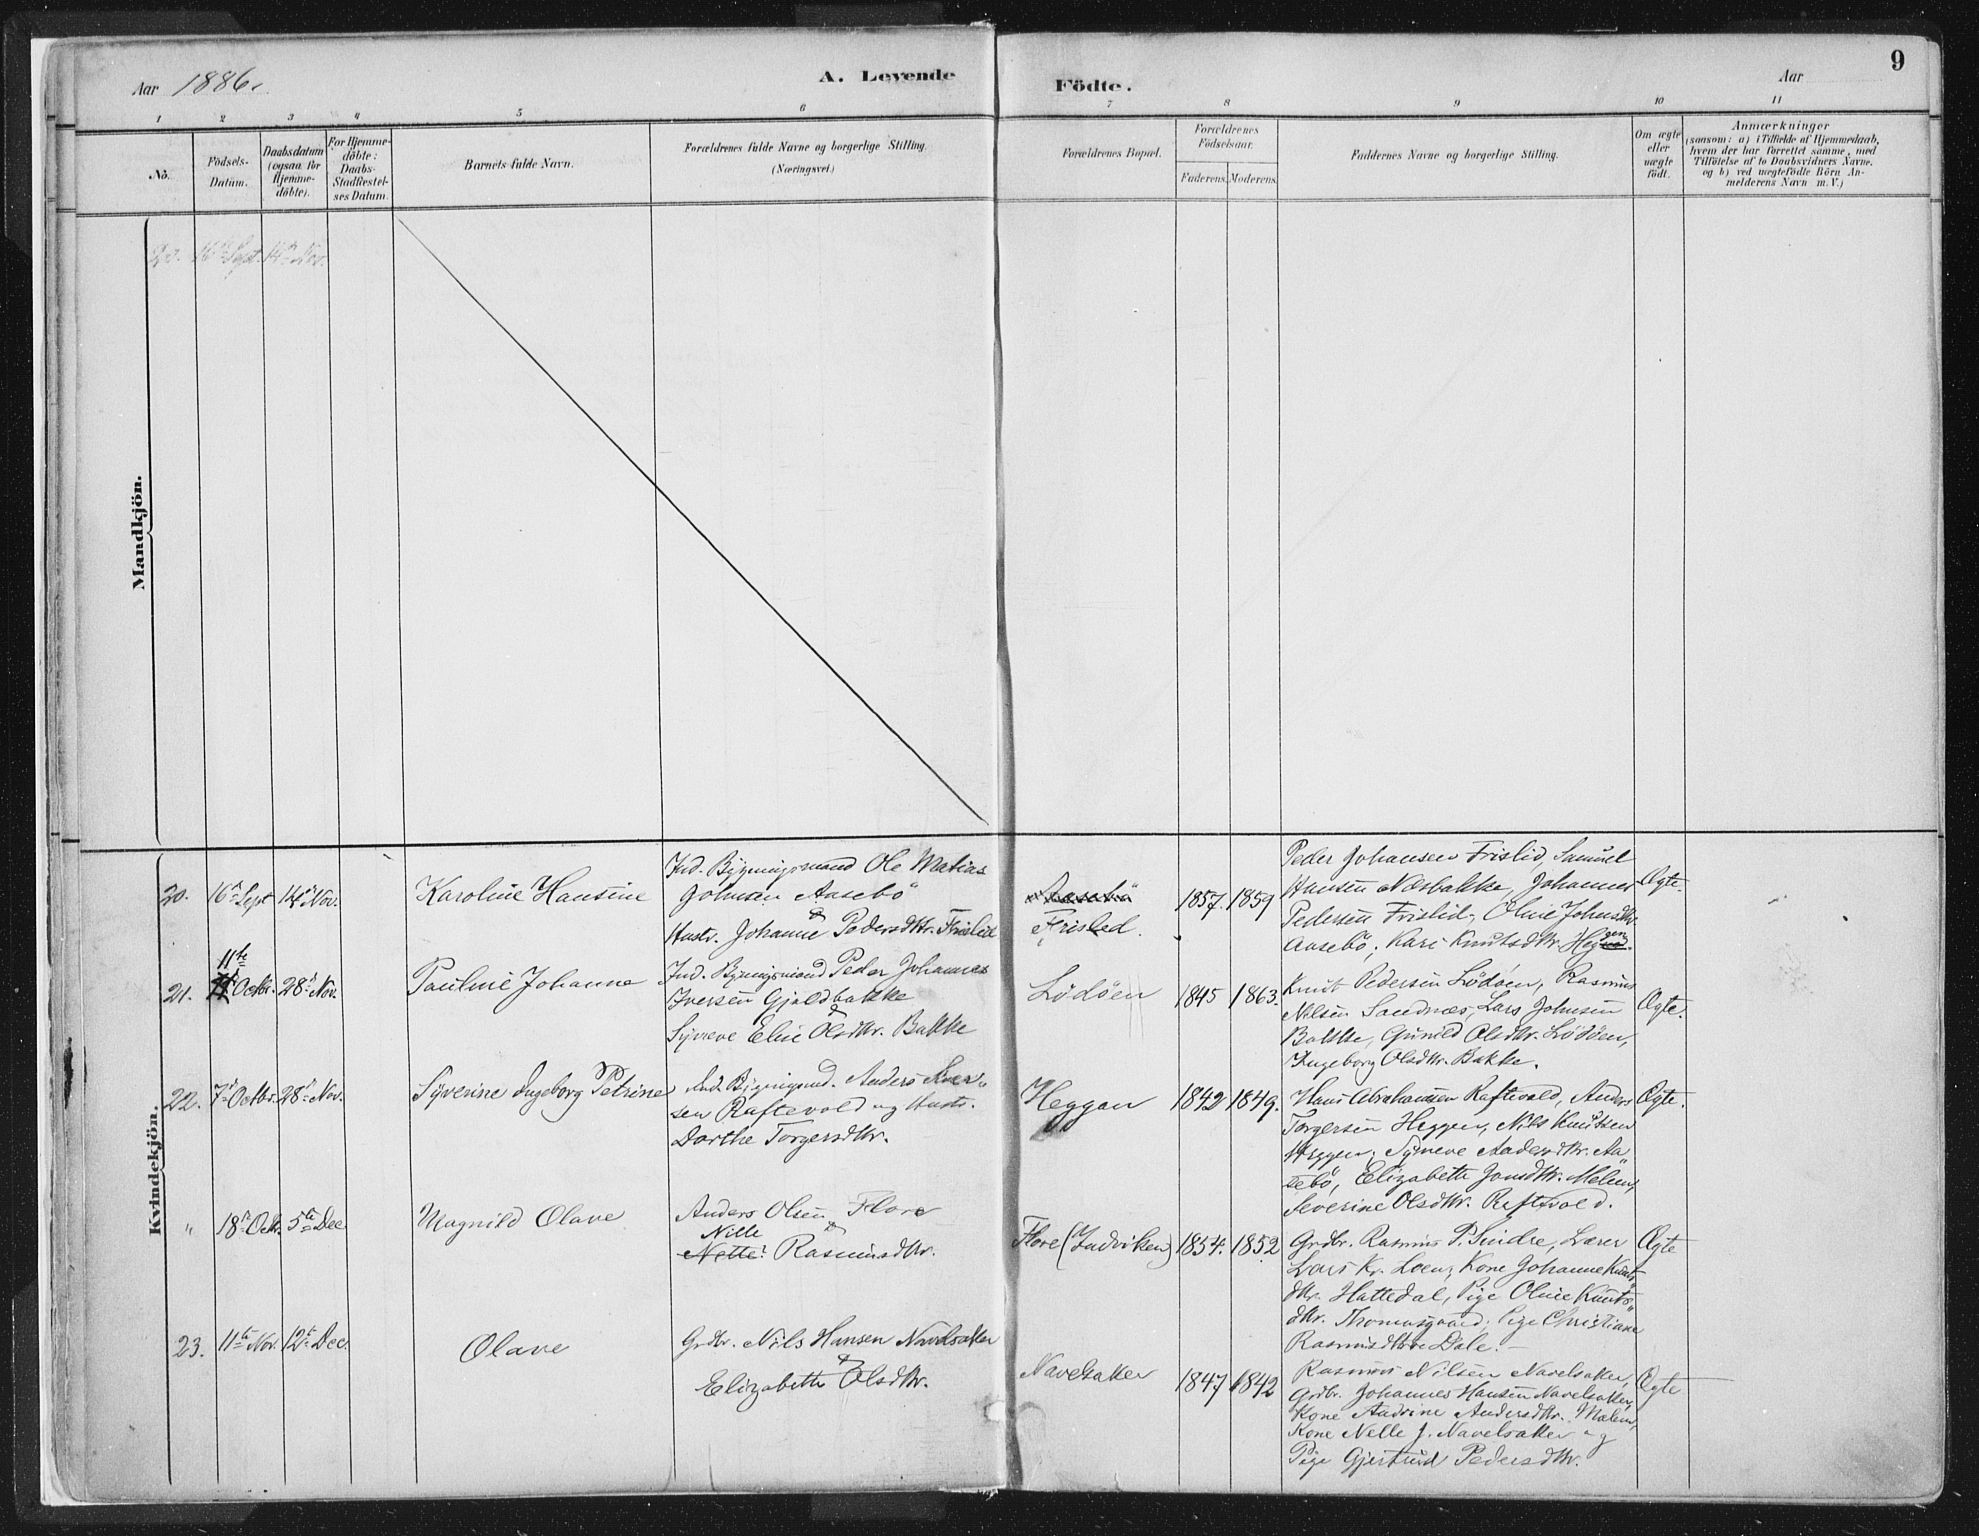 Aar 1886.
A. Levende
Födte.
Aar
9
1 2 3 4 5 6 7 8 9 10 11
No.
Födsels-
Datum.
Daabsdatum
(ogsaa for
Hjemme-
döbte).
For Hjemme-
döbte:
Daabs-
Stadfæstel-
ses Datum.
Barnets fulde Navn.
Forældrenes fulde Navne og borgerlige Stilling.
(Næringsvei.)
Forældrenes Bopæl.
Forældrenes
Födselsaar.
Faderens. Moderens.
Faddernes Navne og borgerlige Stilling.
Om ægte
eller
uægte
födt.
Anmærkninger
(saasom: a) i Tilfælde af Hjemmedaab,
hvem der har forrettet samme, med
Tilföielse af to Daabsvidners Navne.
og b) ved uægtefödte Börn An-
melderens Navn m. V.)
Mandkjön.
20. 16 Sept. 14 Nov.
Kvindekjön.
20. 16 Sept 14 Nov.
Karoline Hansine
Ind. Bygningsmand Ole Matias
Johnsen Aasebö
&
Hustr. Johanne Pedersdtr. Frislid
Aasebö
Frislid.
1857. 1859
Peder Johansen Frislid, Samuel
Hansen Næsbakke, Johannes
Pedersen Frislid, Oline Johnsdtr.
Aasebö, Kari Knutsdtr. Heggen
Ægte.
21. 11te Octbr. 28 Nov.
Pauline Johanne
Ind. Bygningsmand Peder Johannes
Iversen Gjaldbakke
&
Synneve Eline Olsdtr. Bakke
Lödöen
1845 1863.
Knut Pedersen Lödöen, Rasmus
Nilsen Sandnes, Lars Johnsen
Bakke, Gunild Olsdtr. Lödöen,
Ingeborg Olsdtr. Bakke.
Ægte.
22. 7 Octbr. 28 Nov.
Syverine Ingeborg Petrine
Ind. Bygningsmd. Anders Iver-
sen Raftevold og Hustr.
Dorthe Torgersdtr.
Heggen
1842 1849.
Hans Abrahamsen Raftevold, Anders
Torgersen Heggen, Nils Knutsen
Heggen, Synneve Andersdtr. Aa-
sebö, Elizabeth Jonsdtr. Melem,
Severine Olsdtr. Raftevold.
Ægte.
" 18 Octb. 5te Dec
Magnild Olave
Anders Olsen Flore
Nille &
Nette Rasmusdtr.
Flore (Indviken)
1854. 1852
Grdbr. Rasmus P. Sindre, Lærer
Lars Kr. Loen, Kone Johanne Knuts-
dtr. Hattedal, Pige Oline Knuts-
dtr. Thomasgaard, Pige Christiane
Rasmusdtr Dale.
Ægte
23. 11te Nov. 12te Dec.
Olave
Grdbr. Nils Hansen Navelsaker
&
Elizabeth Olsdtr.
Navelsaker
1847 1842
Rasmus Nilsen Navelsaker,
Grdbr. Johannes Hansen Navelsaker,
Kone Andrine Andersdtr. Melem,
Kone Nelle J. Navelsaker og
Pige Gjertrud Pedersdtr.
Ægte